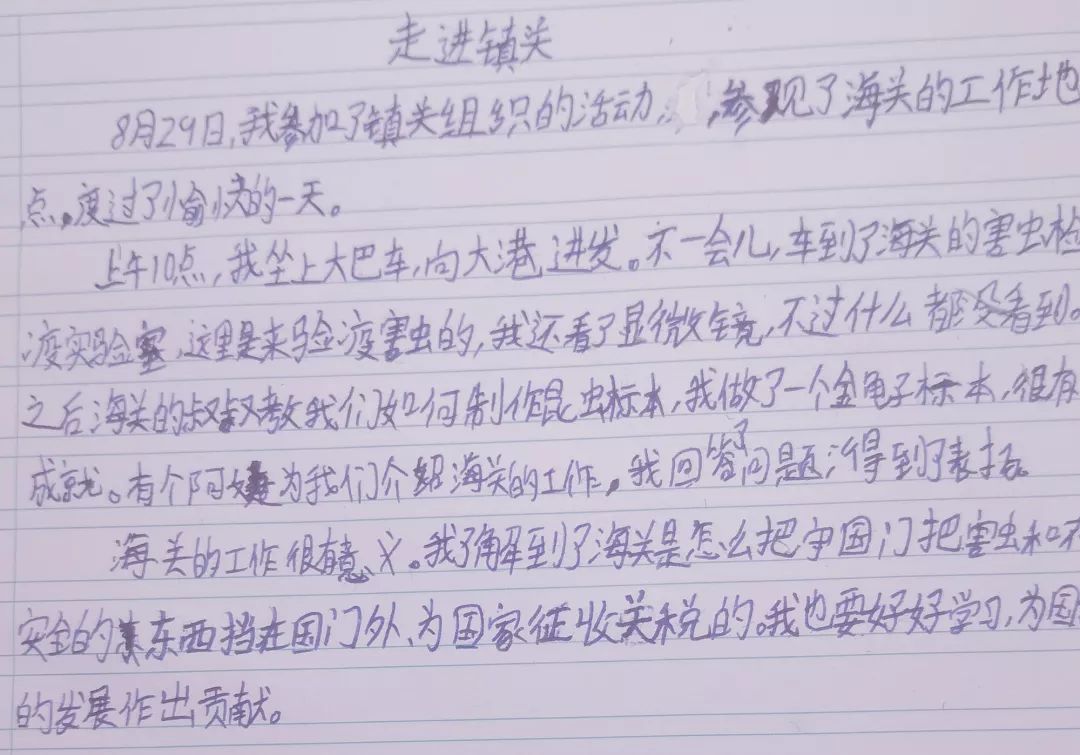 走进镇关
8月29日,我参加了镇关组织的活动,参观了海关的工作地
点,度过了愉快的一天。
上午10点,我坐上大巴车,向大港进发。不一会儿,车到了海关的害虫检
疫实验室,这里是来验疫害虫的,我还看了显微镜,不过什么都没看到。
之后海关的叔叔教我们如何制作昆虫标本,我做了一个金龟子标本,很有
成就。有个阿姨为我们介绍海关的工作,我回答了问题,得到了表扬。
海关的工作很有意义。我了解到了海关是怎么把守国门把害虫和不
安全的东西挡在国门外、为国家征收关税的。我也要好好学习,为国
的发展作出贡献。